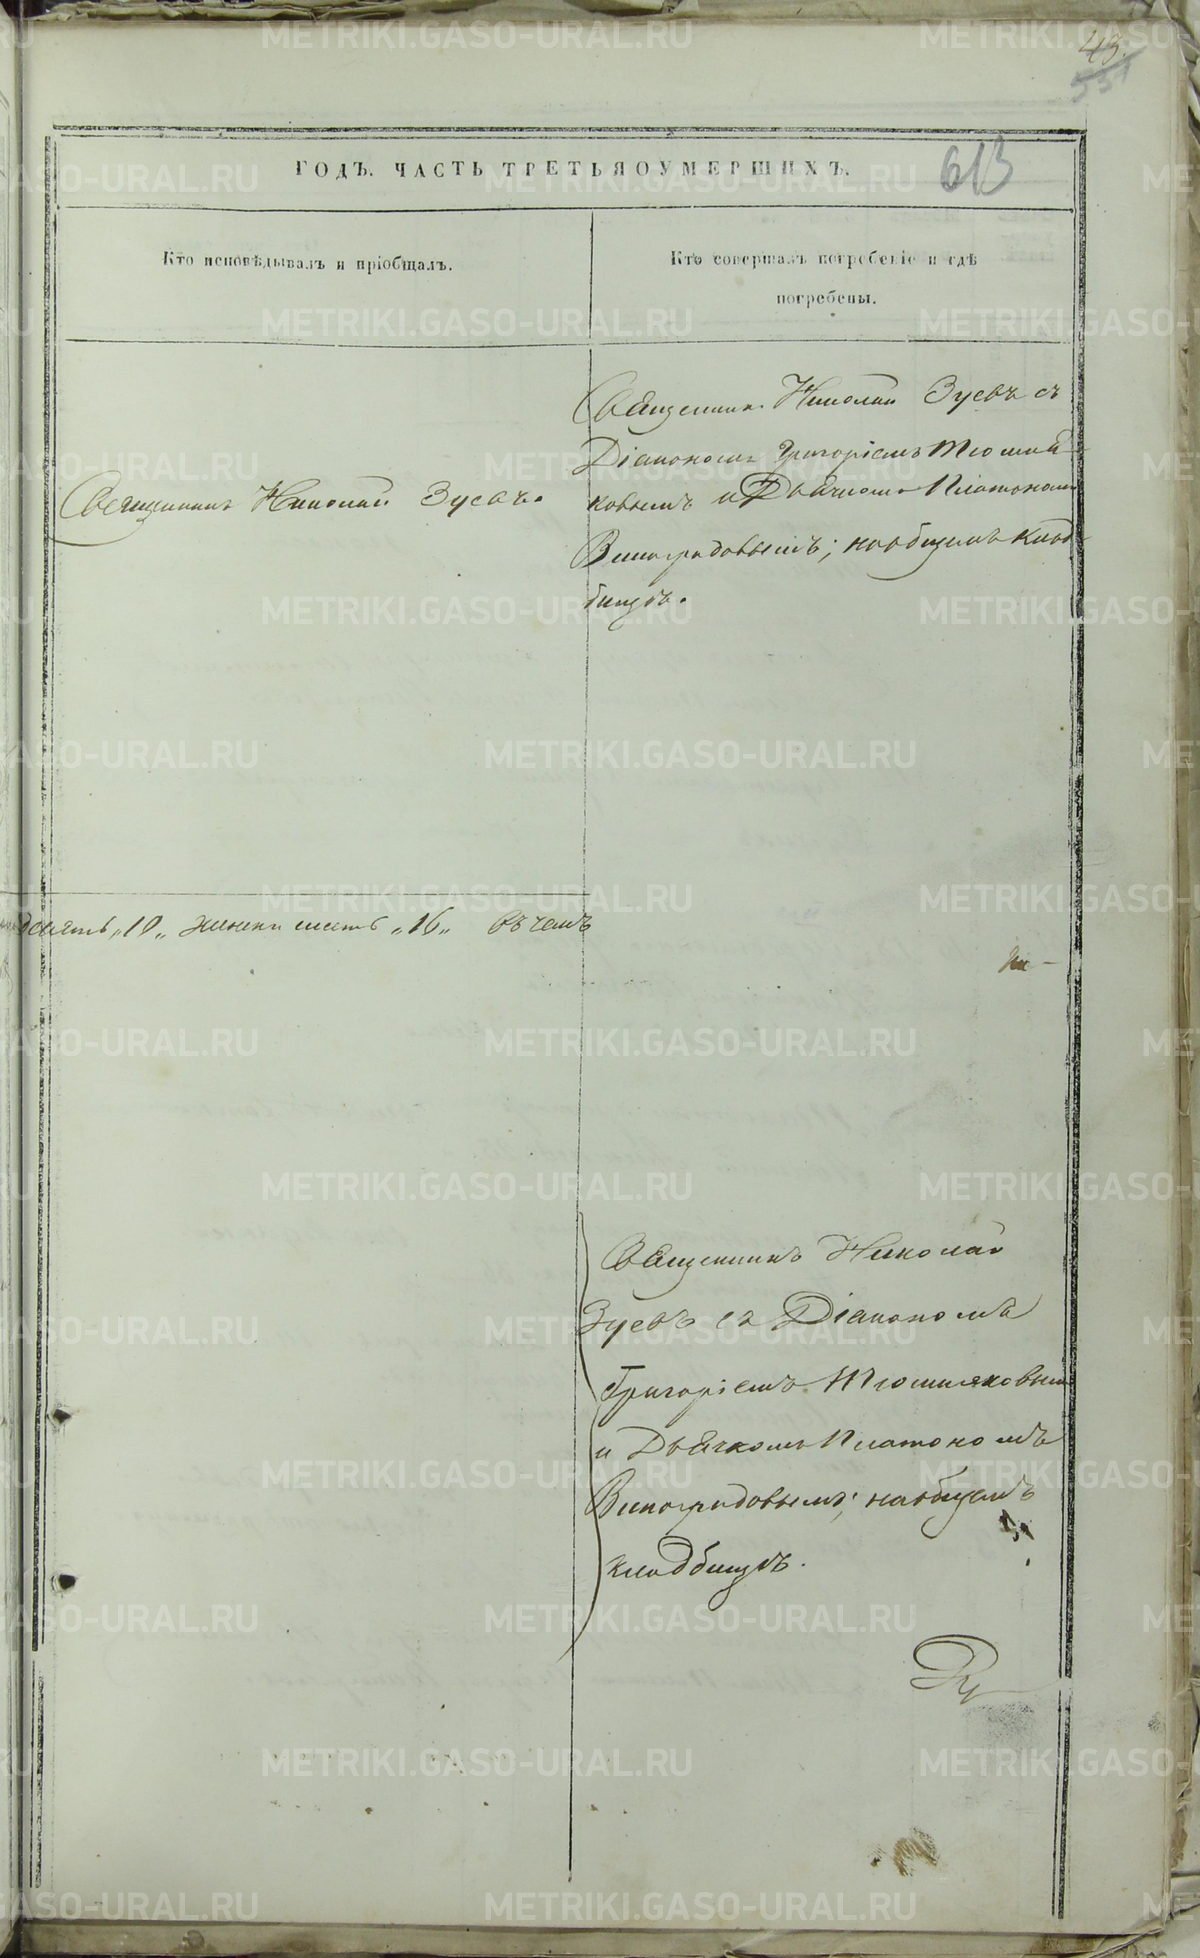 43.
551
613
ГОДЪ. ЧАСТЬ ТРЕТЬЯ О УМЕРШИХЪ.
Кто исповѣдывалъ и пріобщалъ.
Кто совершалъ погребеніе и гдѣ
погребены.
Священникъ Николай Зуевъ.
Священникъ Николай Зуевъ съ
Діакономъ Григоріемъ Тюшня-
ковымъ и Дьячкомъ Платономъ
Виноградовымъ; на общемъ клад-
бищѣ.
десять „10„ женска шесть „16„ въ чемъ
Священникъ Николай
Зуевъ съ Діакономъ
Григоріемъ Тюшняковым
и Дьячкомъ Платономъ
Виноградовымъ; на общемъ
кладбищѣ.
METRIKI.GASO-URAL.RU